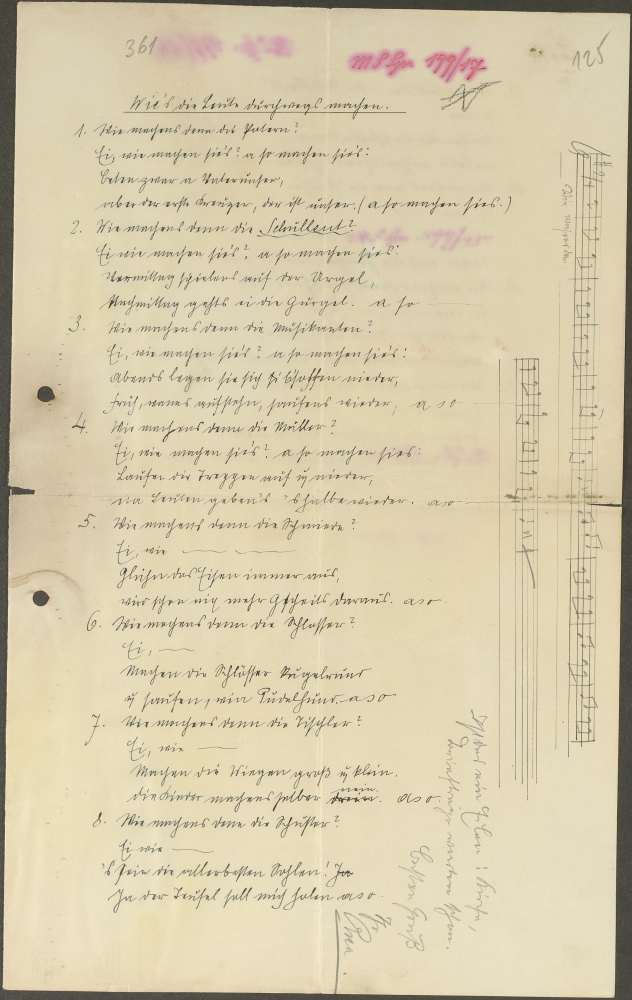 361
125
Wie's die Leute durchwegs machen.
1. Wie machens denn die Patern?
Ei, wie machen sie's? a so machen sie's:
Beten zwar a Vaterunser,
aber der erste Kreuzer, der ist unser. (a so machen sie's.)
2. Wie machens denn die Schulleut?
Ei wie machen sie's? a so machen sie's:
Vormittag spielens auf der Urgel,
Nachmittag gehts ei die Gurgel. a so
3. Wie machens denn die Musikanten?
Ei, wie machen sie's? a so machen sie's:
Abends legen sie sich bsoffen nieder,
Früh, wanns aufstehn, saufens wieder, a so
4. Wie machens denn die Müller?
Ei, wie machen sie's? a so machen sie's:
Laufen die Treppen auf u nieder,
na Leuten geben's 's halbe wieder. a so
5. Wie machens denn die Schmiede?
Ei, wie
Glühn das Eisen immer aus,
wird schon nix mehr Gscheits daraus. a so
6. Wie machens denn die Schlosser?
Ei,
Machen die Schlösser kugelrund
u saufen, wie Pudelhund a so
7. Wie machens denn die Tischler?
Ei, wie
Machen die Wiegen groß u klein.
die Kinder machens selber nein. a so.
8. Wie machens denn die Schuster?
Ei wie
's sein die allerbesten Sohlen! Ja
Ja der Teufel soll mich holen a so
Besten Gruß